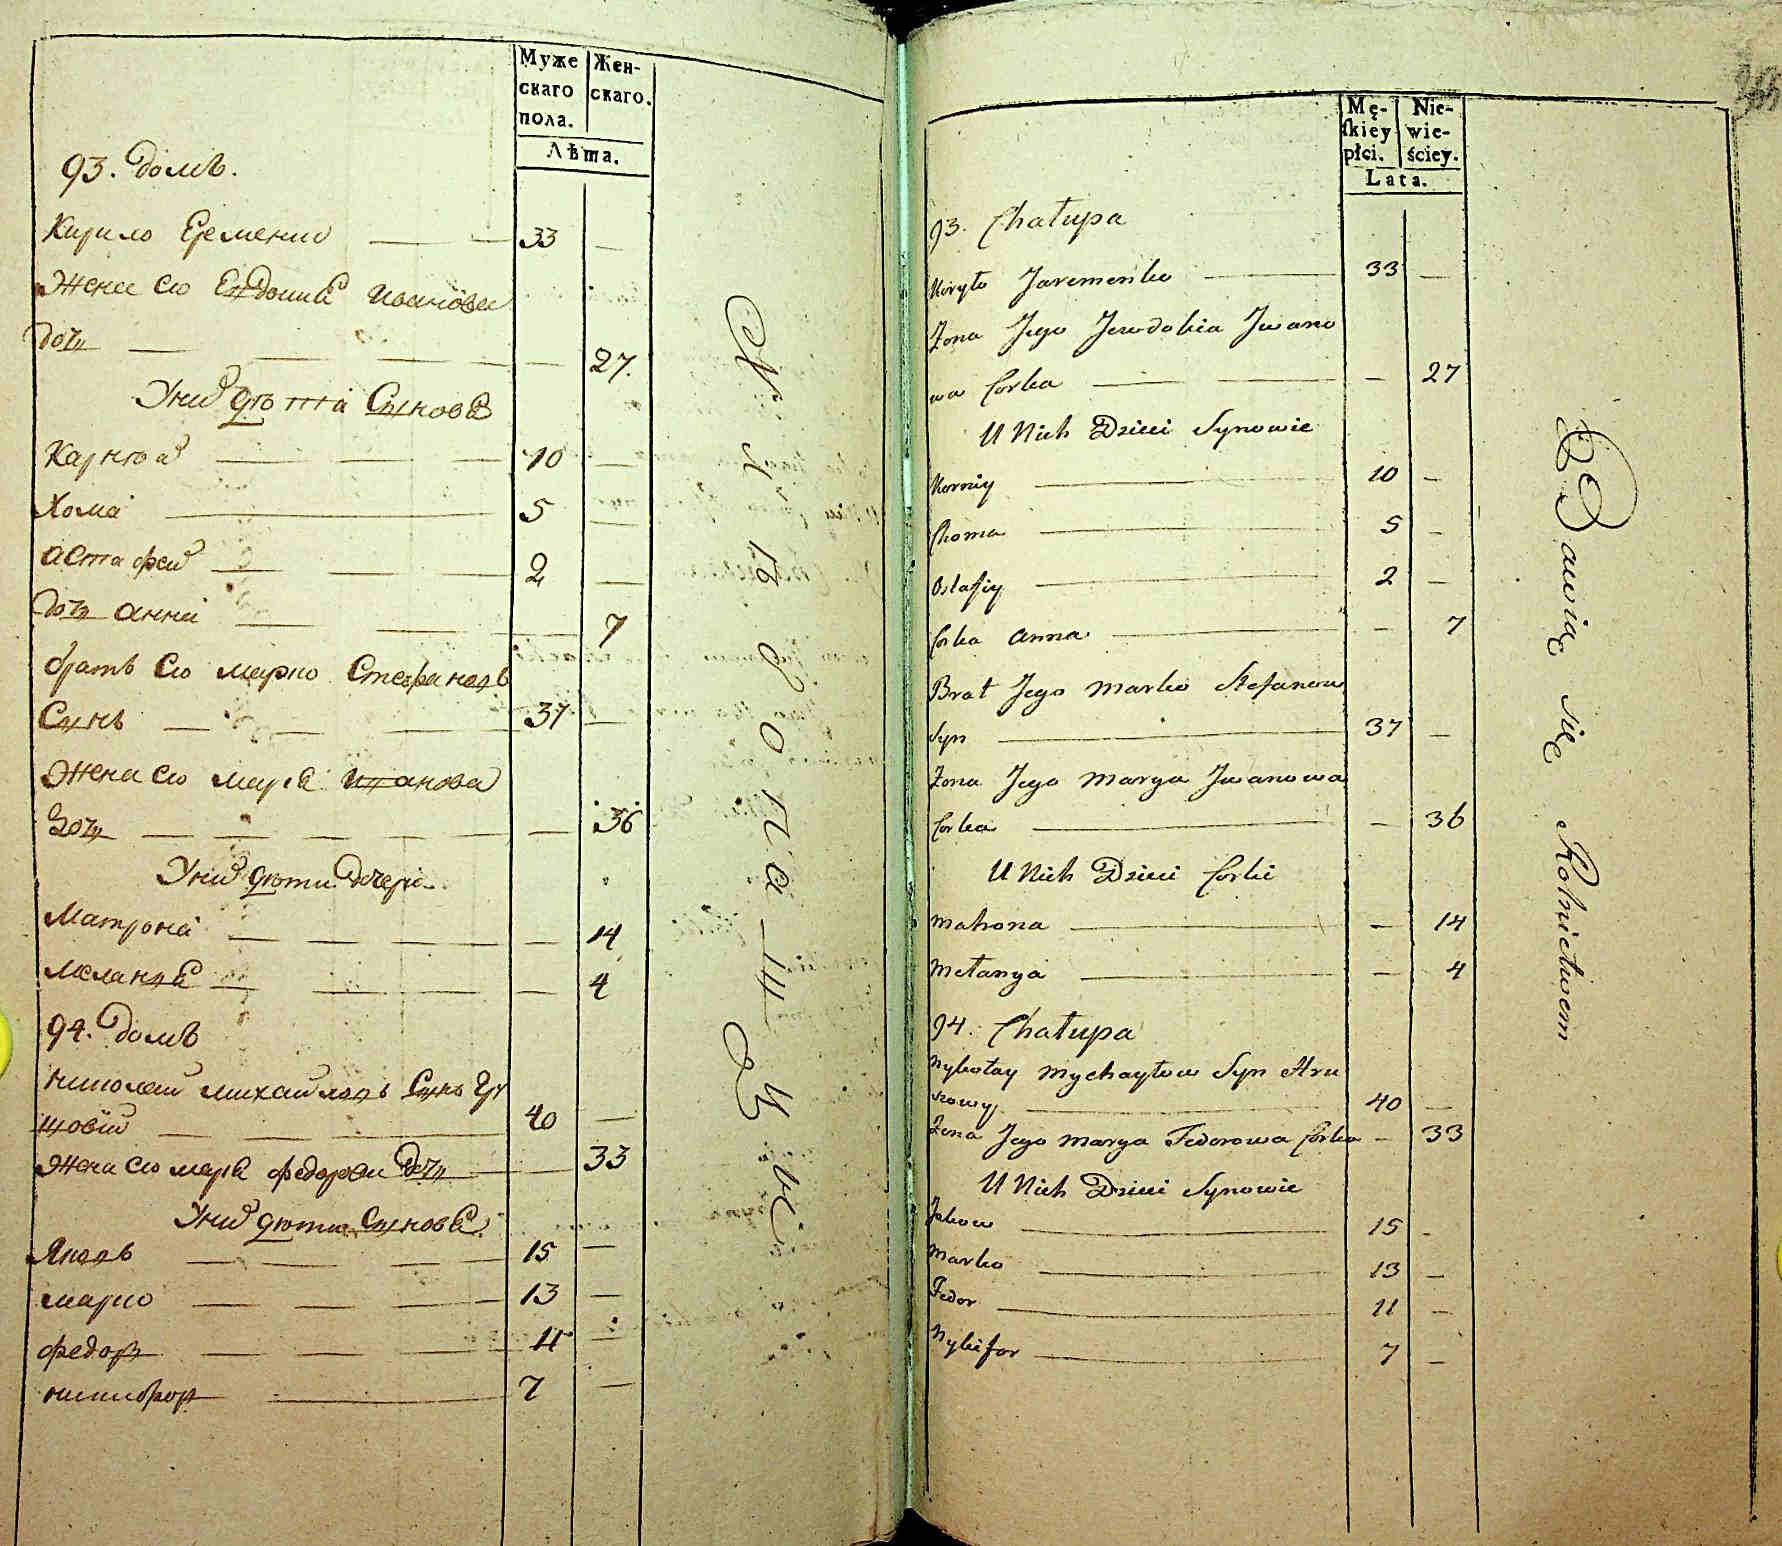 Муже
скаго
пола.
Жен-
скаго.
Лѣта.
93. домъ.
Кирило Еременко 33 —
Жена єго Евдокиꙗ Иванова
дочь — 27.
У них дѣти Синовѣ
Карнѣй 10 —
Хома 5 —
Астафей 2 —
дочь Анна 7
братъ єго марко Стефановъ
Синъ 37 —
Жена єго марꙗ Иванова
дочь — 36
У них дѣти дочери
Матрона — 14
меланꙗ — 4
94. домъ
николай михайловъ Синъ
40 —
Жена єго марꙗ федорова дочь — 33
У них дѣти Синовѣ
Яковъ 15 —
марко 13 —
федоръ 11 —
никифоръ 7 —
Mę-
skiey
płci.
Nie-
wie-
ściey.
Lata.
93. Chałupa
Kiryło Jaremenko 33 —
Żona Jego Jewdokia Jwano
wa Corka — 27
U Nich Dzieci Synowie
Korniy 10 —
Choma 5 —
Ostafiy 2 —
Corka Anna — 7
Brat Jego Marko Stefanow
Syn 37 —
Żona Jego Marya Jwanowa
Corka — 36
U Nich Dzieci Corki
Matrona — 14
Mełanya — 4
94. Chałupa
Nykołay Mychayłow Syn Hru
szowy 40 —
Żona Jego Marya Fedorowa Corka — 33
U Nich Dzieci Synowie
Jakow 15 -
Marko 13 —
Fedor 11 —
Nykifor 7 —
Bawią się Rolnictwem